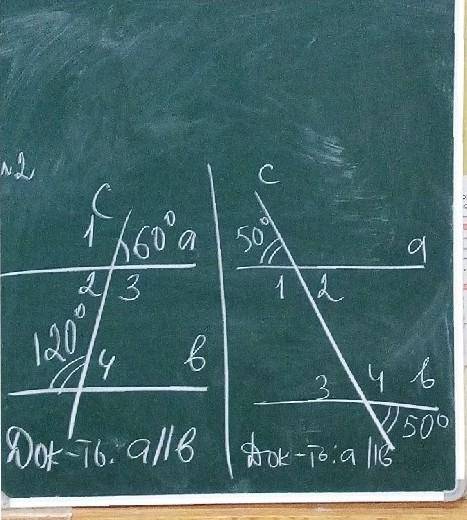 №2
C
1 60° a
2 3
120° 4 в
Док-ть: a || в
C
50° a
1 2
3 4 в
50°
Док-ть: a || в